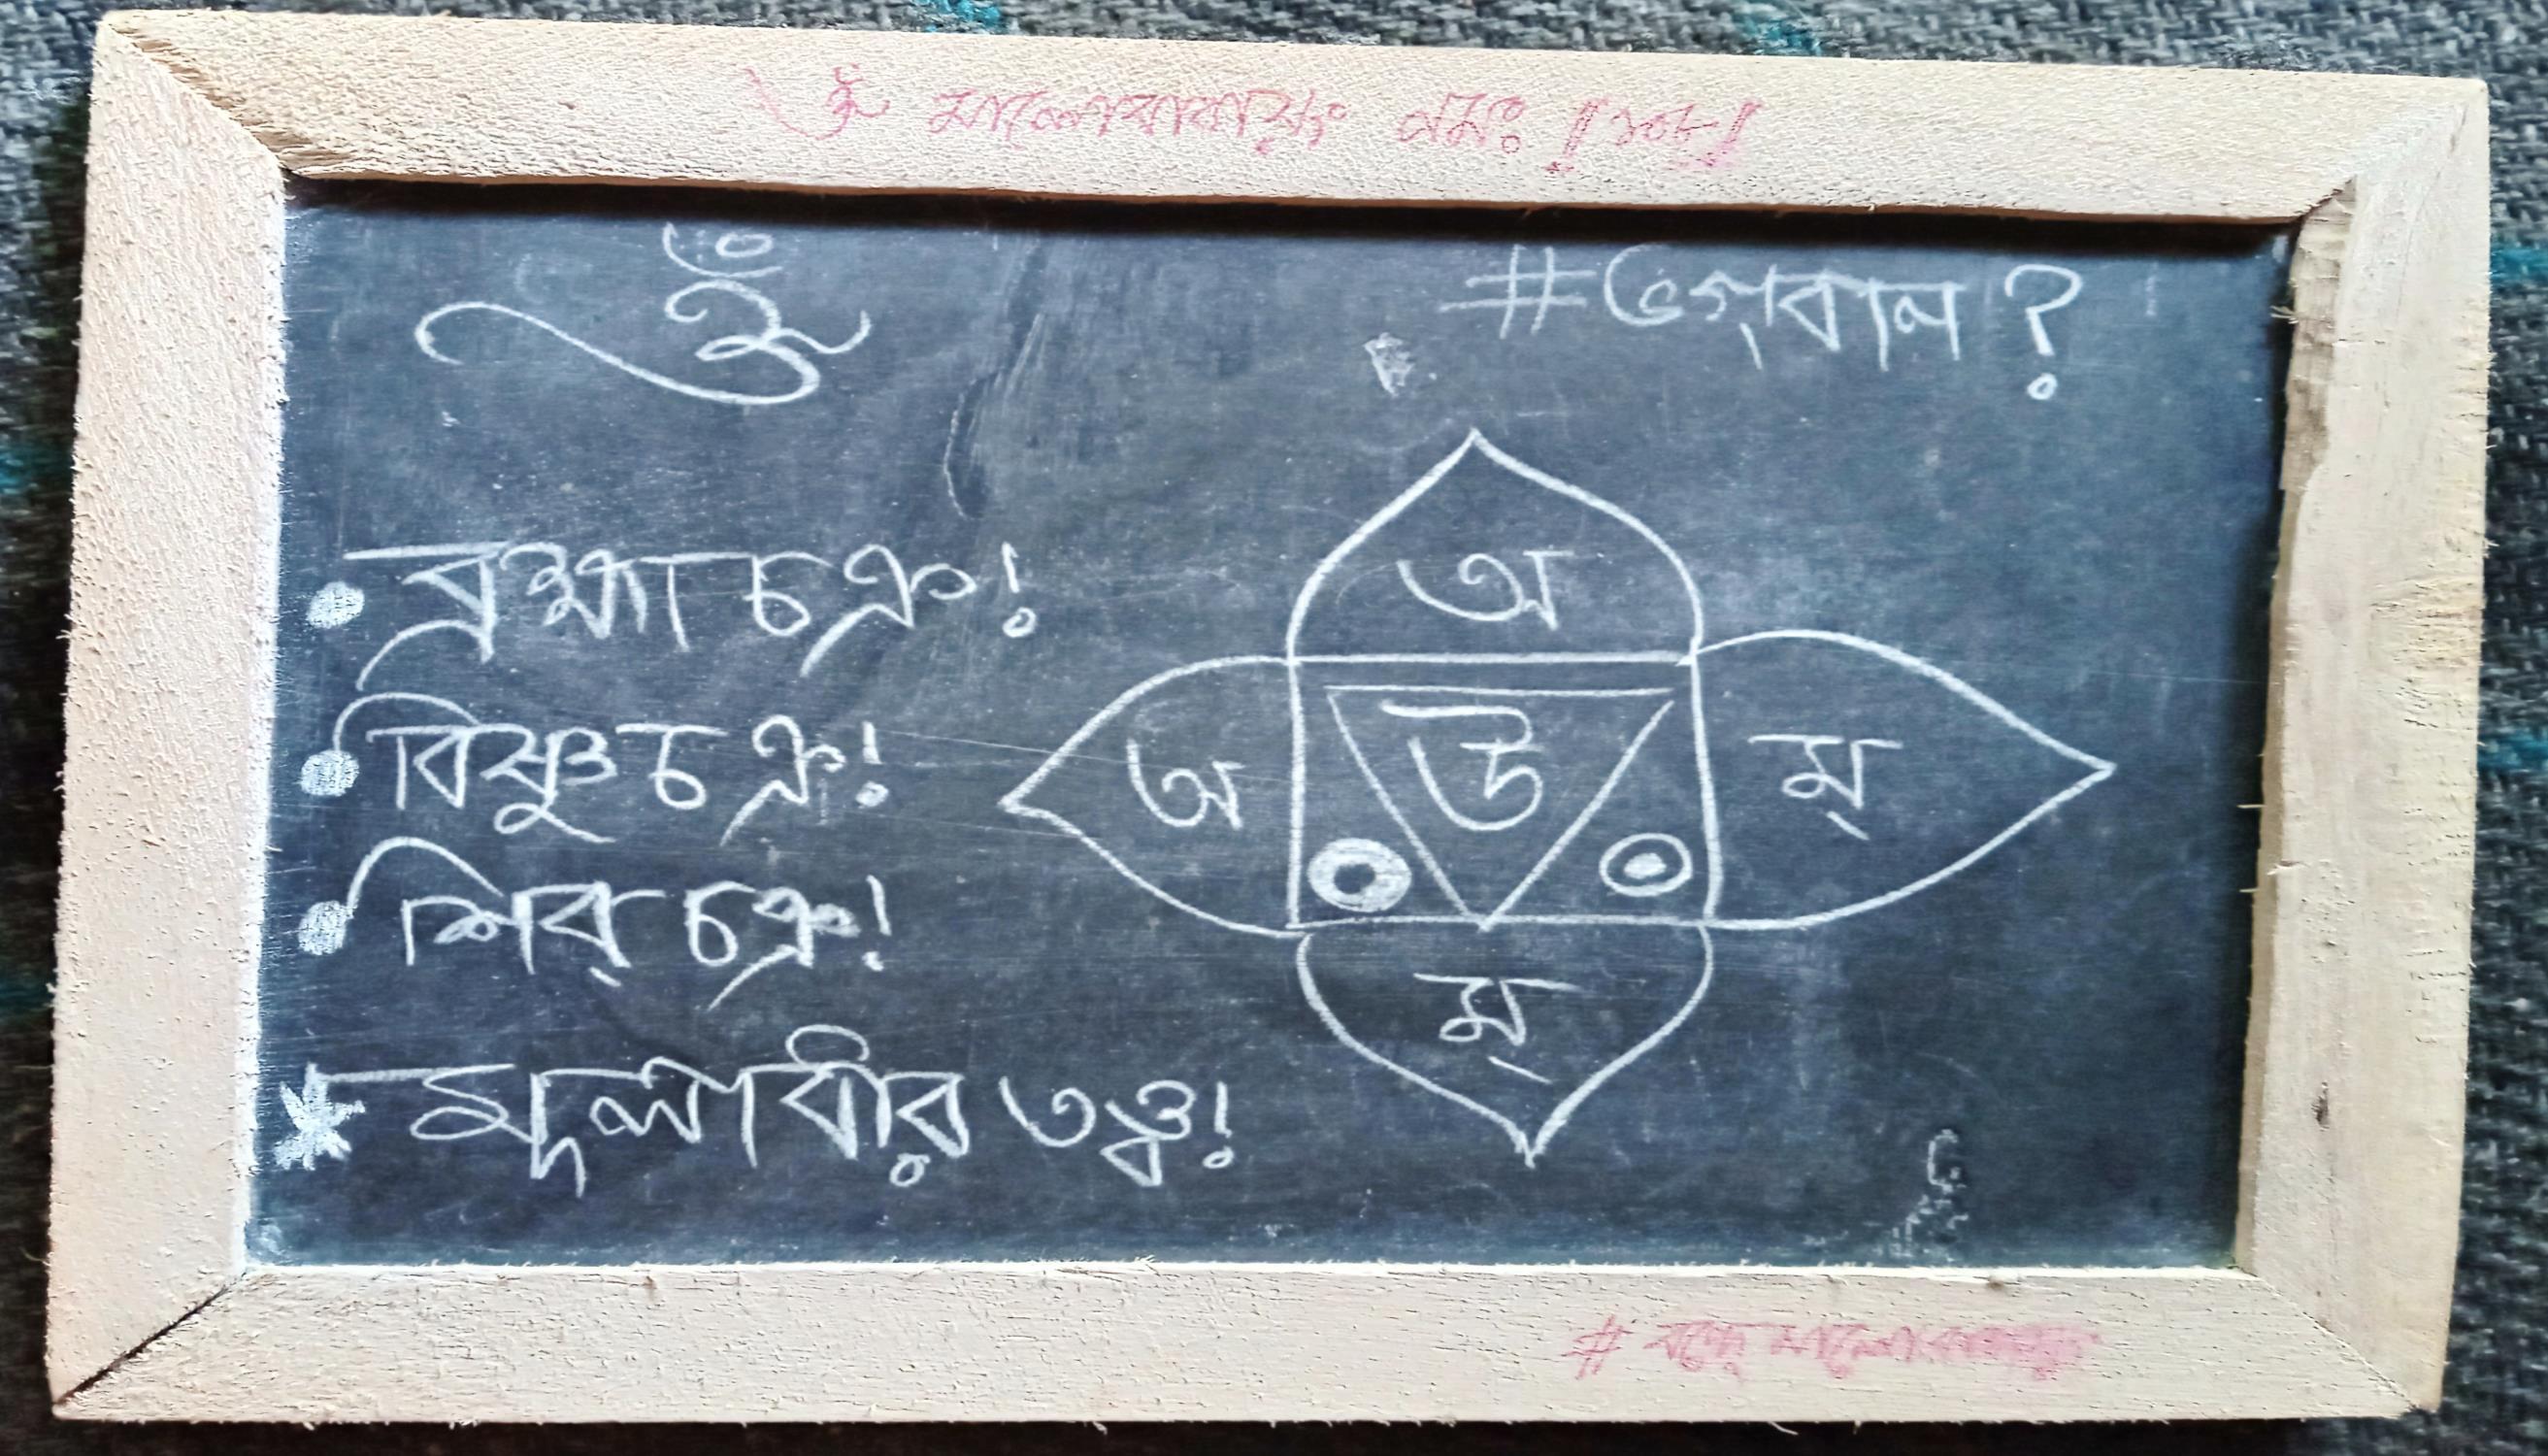 ওঁ নমঃ ||১০৮||
ওঁ
#ভগ্বান ?
ব্রহ্মা চক্র!
বিষ্ণু চক্র!
শিব্ চক্র!
মূলাবীর তত্ত্ব!
অ
অ উ ম্
ম্
#